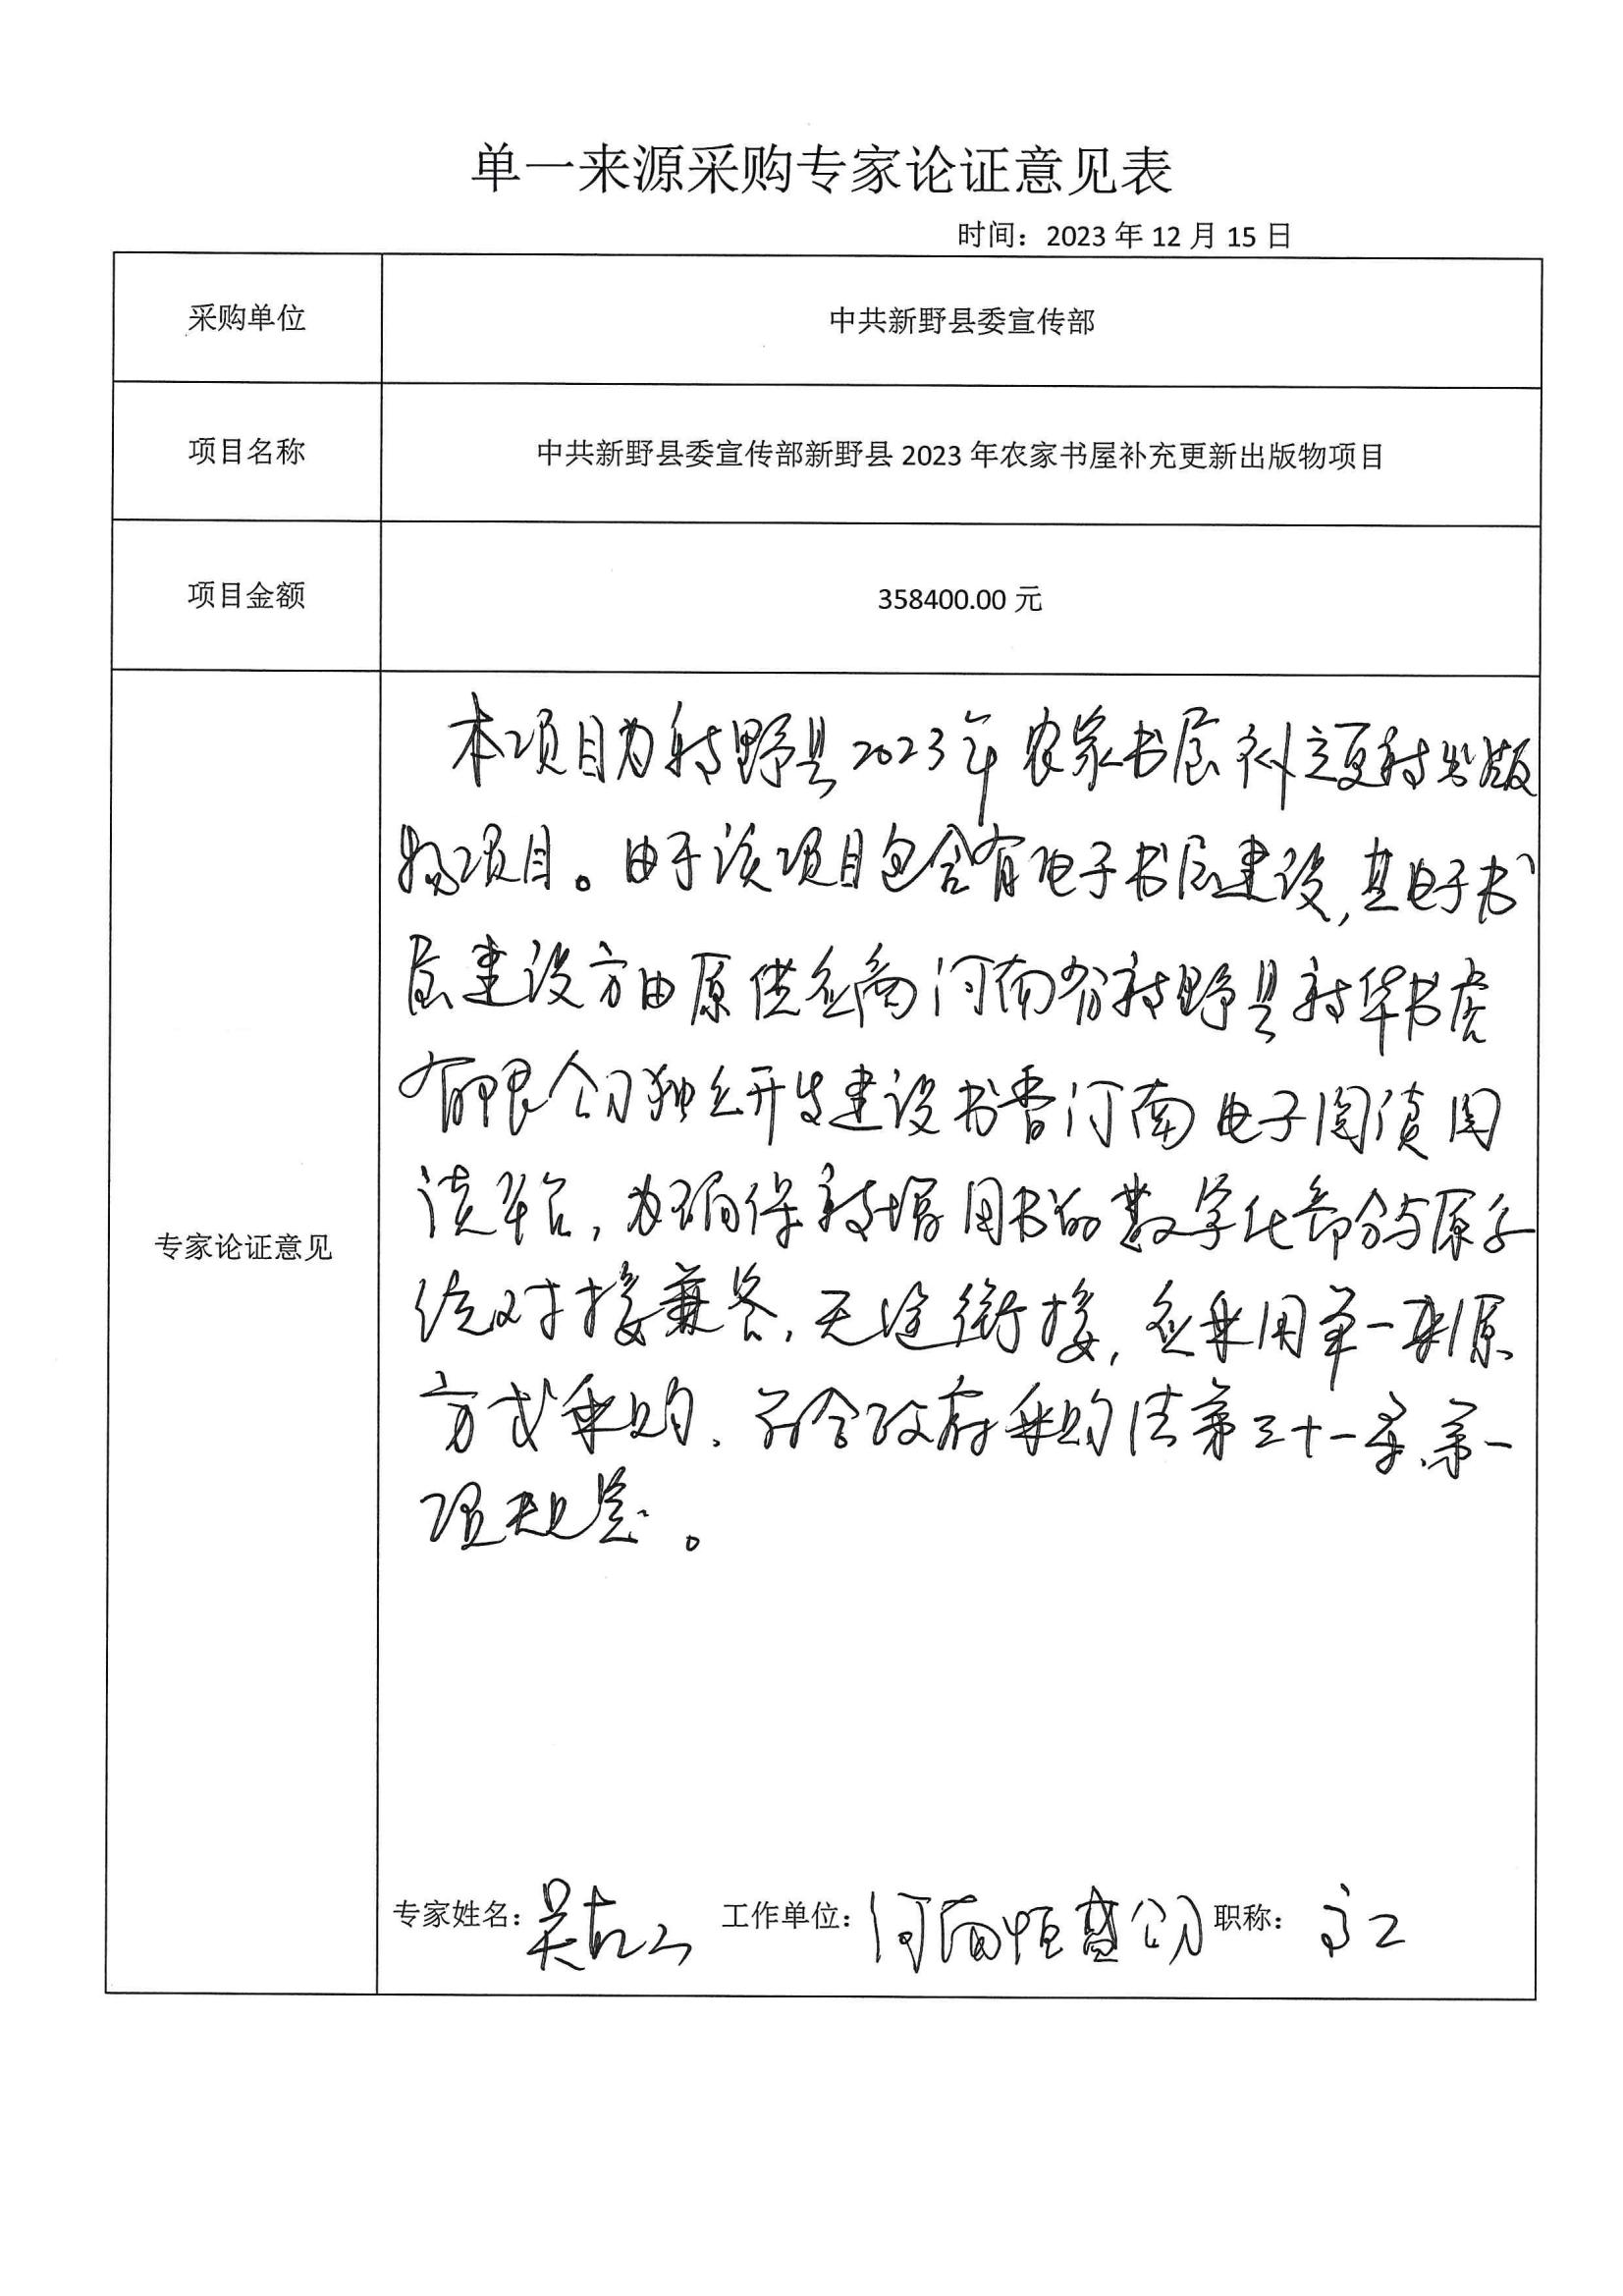 单一来源采购专家论证意见表
时间：2023 年 12 月 15 日
采购单位
中共新野县委宣传部
项目名称
中共新野县委宣传部新野县 2023 年农家书屋补充更新出版物项目
项目金额
358400.00 元
专家论证意见
本项目为新野县2023年农家书屋补充更新出版
物项目。由于该项目包含有电子书屋建设,其电子书
屋建设方由原供应商河南省新野县新华书店
有限公司独立开发建设书香河南电子阅读阅
读平台,为确保新增图书的数字化部分与原系
统对接兼容,无缝衔接,应采用单一来源
方式采购、符合政府采购法第三十一条、第一
项规定。
专家姓名：吴 工作单位：河南恒盛公司 职称：高工